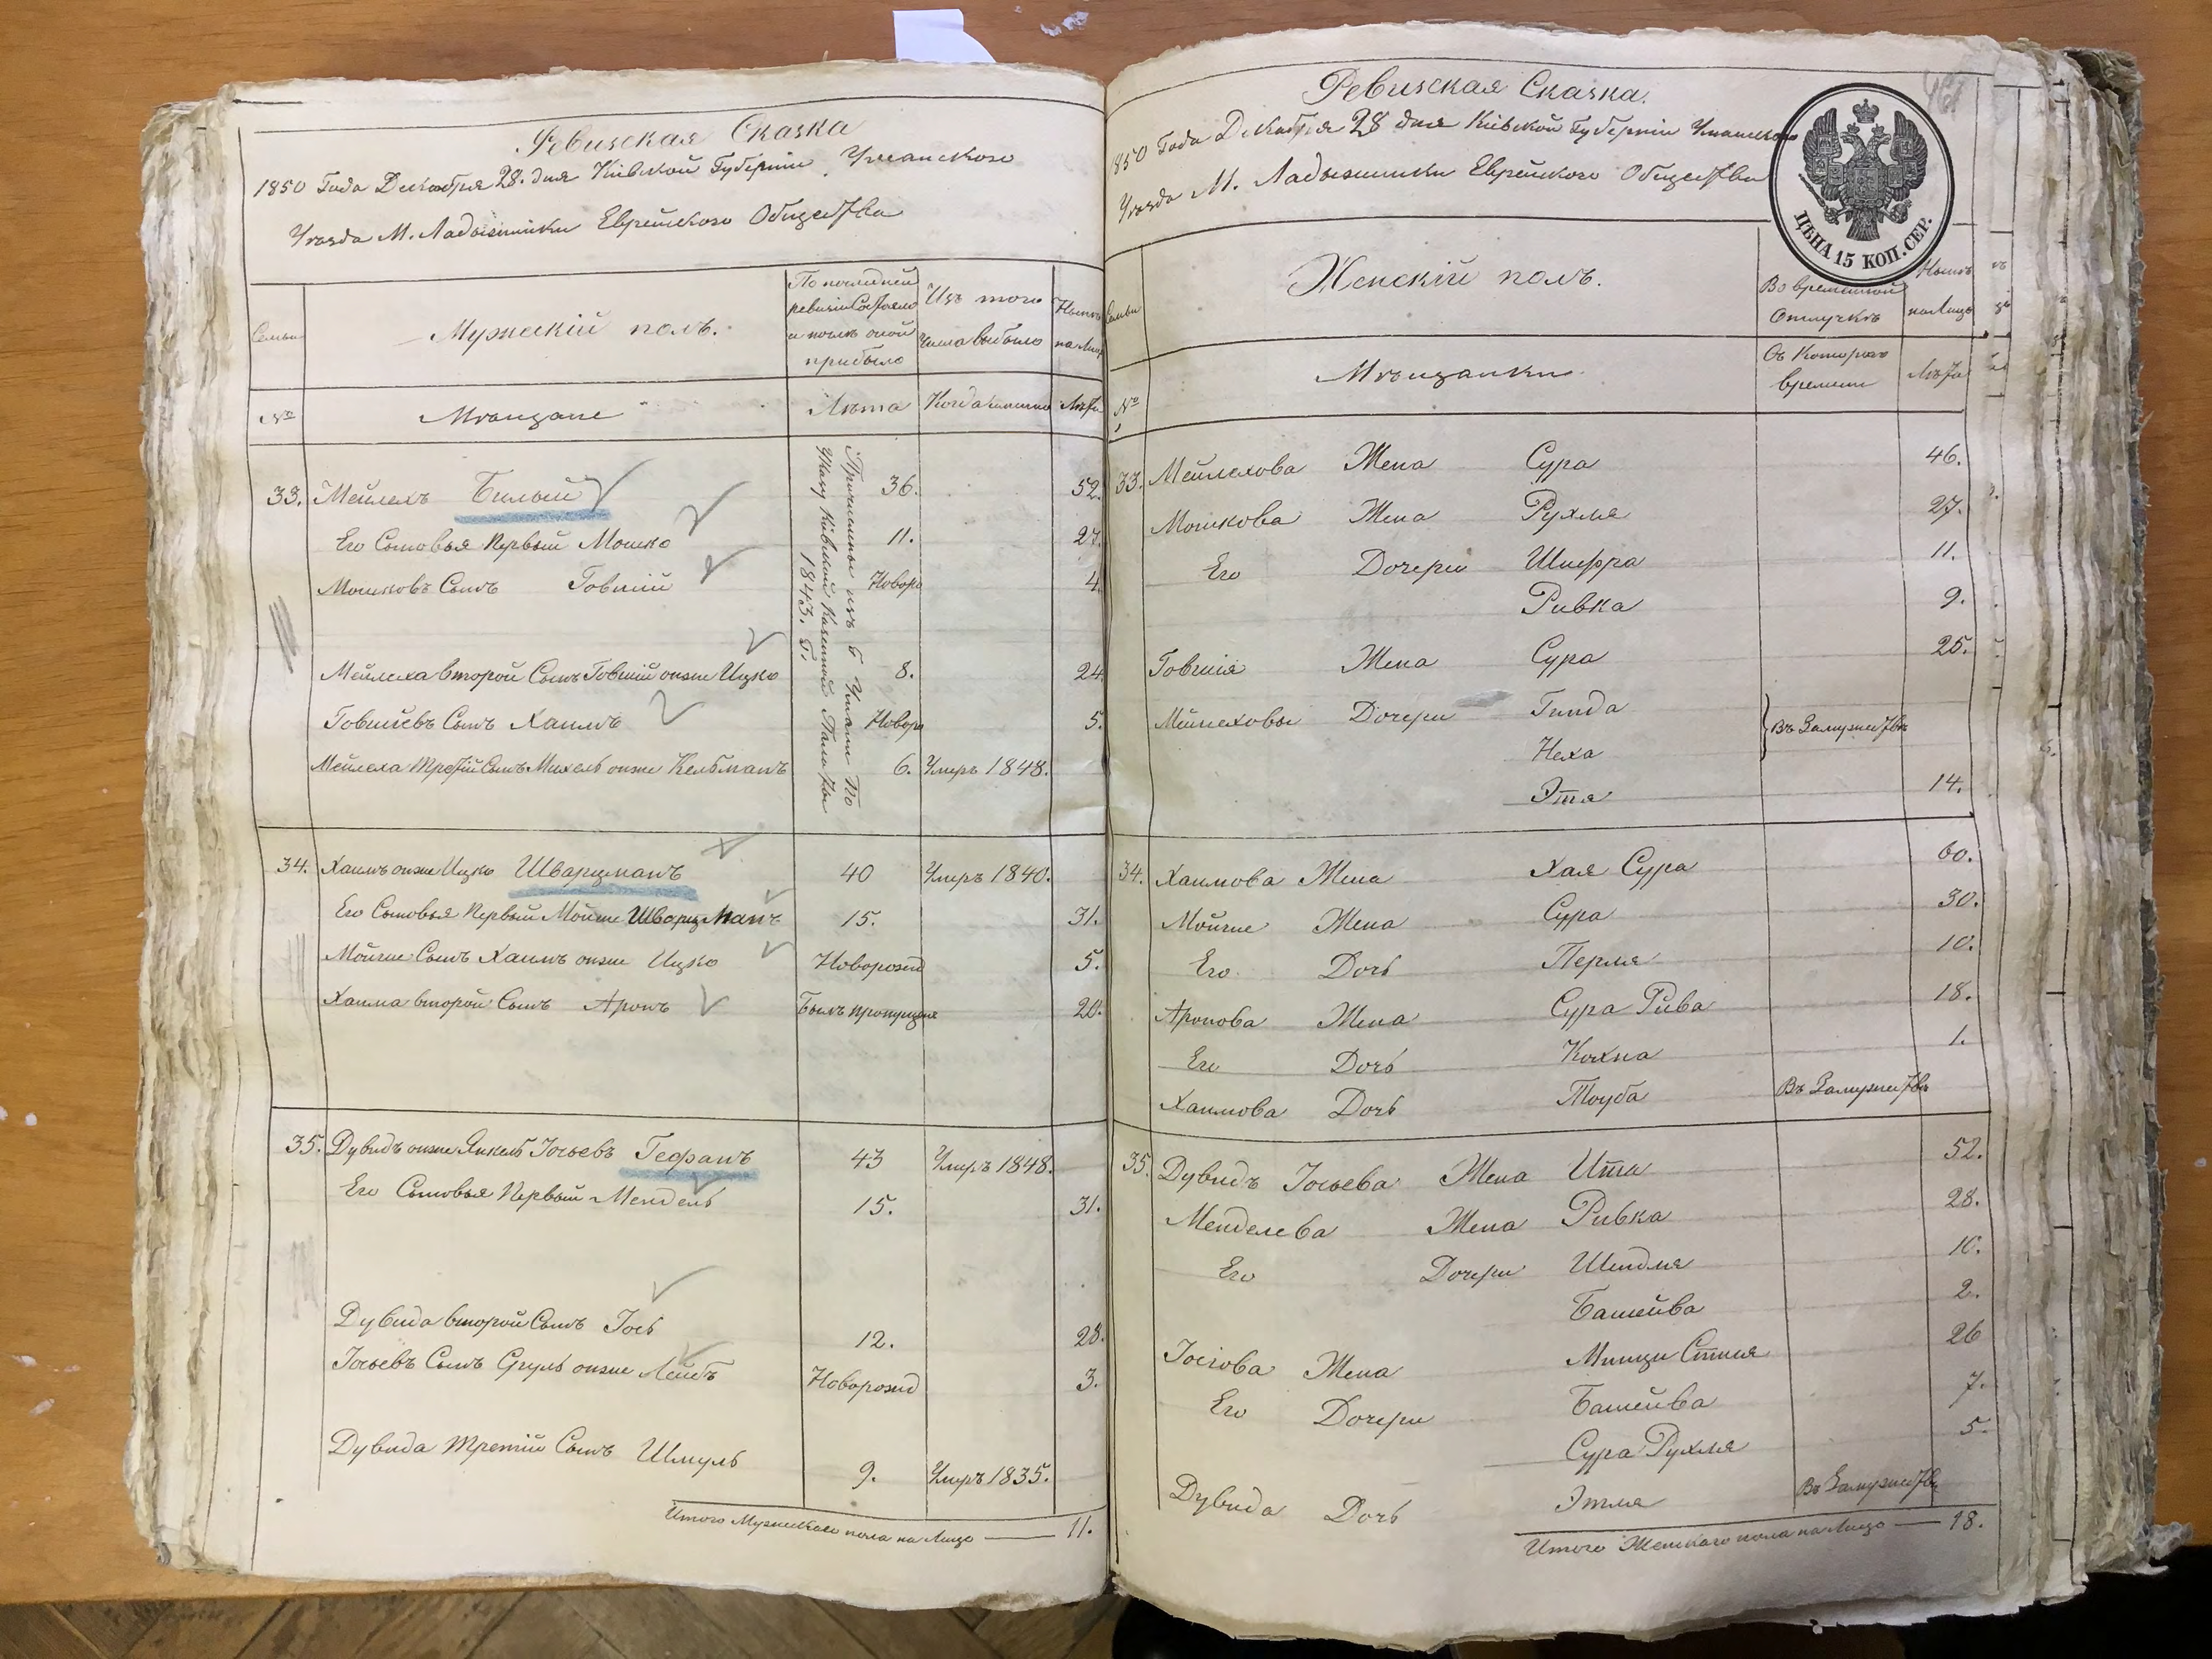 Ревизская Сказка
1850 Года Декабря 28. дня Кіевской Губерніи Уманскаго
Уѣзда М. Ладыжинки Еврейского Общества
Семьи
Мужескій полъ.
По последней
ревизіи Состояло
и послѣ оной
прибыло
Изъ того
числа выбыло
Нынѣ
на лицо
№
Мѣщане
Лѣта
Когда именно
Лѣта
33. Мейлехъ Билый 36. 52.
Его Сыновья Первый Мошко 11. 27.
Мошковъ Сынъ Говшій Новоро 4
Мейлеха второй Сынъ Говшій онже Ицко 8. 24
Говшіевъ Сынъ Хаимъ Новоро 5.
Мейлеха Третій Сынъ Михель онже Кельманъ 6. Умеръ 1848.
Причислены изъ Г Умани По
Указу Кіевской Казенной Палаты
1843. Г.
34. Хаимъ онже Ицко Шварцманъ 40 Умеръ 1840.
Его Сыновья Первый Мойше Шварцманъ 15. 31.
Мойше Сынъ Хаимъ онже Ицко Новорожд 5.
Хаима второй Сынъ Аронъ Былъ пропущенъ 20.
35. Дувидъ онже Янкель Іосьевъ Гефанъ 43 Умеръ 1848.
Его Сыновья Первый Мендель 15. 31.
Дувида второй Сынъ Іось 12. 28.
Іосьевъ Сынъ Сруль онже Лейбъ Новорожд 3.
Дувида Третій Сынъ Шмуль 9. Умеръ 1835.
Итого Мужескаго пола на Лицо — 11.
Ревизская Сказка.
1850 Года Декабря 28 дня Кіевской Губерніи Уманскаго
Уѣзда М. Ладыжинки Еврейского Общества
ЦѢНА 15 КОП. СЕР.
Семьи
Женскій полъ.
Во временной
Отлучкѣ
Нынѣ
на Лицо
№
Мѣщанки
Съ Котораго
времени
Лѣта
33. Мейлехова Жена Сура 46.
Мошкова Жена Рухля 27.
Его Дочери Шифра 11.
Ривка 9.
Говшія Жена Сура 25.
Мейлеховы Дочери Гинда
Въ Замужествѣ
Неха
Этя 14.
34. Хаимова Жена Хая Сура 60.
Мойше Жена Сура 30.
Его Дочь Перля 10.
Аронова Жена Сура Рива 18.
Его Дочь Кохна 1.
Хаимова Дочь Тоуба Въ Замужествѣ
35. Дувидъ Іосьева Жена Ита 52.
Менделева Жена Ривка 28.
Его Дочери Шендля 10.
Башейва 2.
Іосіова Жена 26
Его Дочери Башейва 7.
Сура Рухля 5.
Дувида Дочь Этля Въ Замужествѣ
Итого Женскаго пола на Лицо — 18.